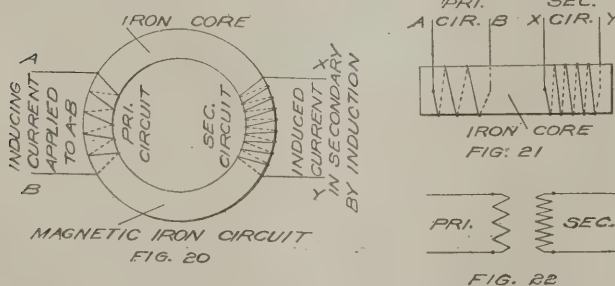 IRON CORE
A
INDUCING
CURRENT
APPLIED
TO A-B
B
PRI.
CIRCUIT
SEC.
CIRCUIT
X
INDUCED
CURRENT
IN SECONDARY
BY INDUCTION
Y
MAGNETIC IRON CIRCUIT
FIG. 20
PRI. SEC.
A CIR. B X CIR. Y
IRON CORE
FIG. 21
PRI. SEC.
FIG. 22